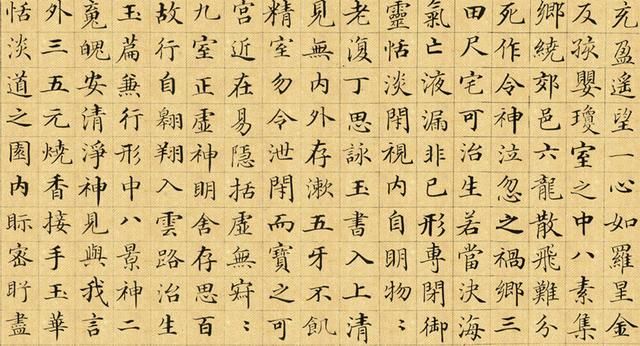 充盈遥望一心如羅星金
反孩嬰瓊室之中八素集
鄉繞郊邑六龍散飛難分
死作令神泣忽之禍鄉三
田尺宅可治生若當決海
氣亡液漏非己形專閉御
靈恬淡閑視內自明物〻
老復丁思詠玉書入上清
見無內外存漱五牙不飢
精室勿令泄閇而寶之可
宮近在易隱括虛無寂〻
九室正虛神明舍存思百
故行自翱翔入雲路治生
玉篇兼行形中八景神二
䰟魄安清淨神見與我言
外三五元燒香接手玉華
恬淡道之園內眎密盻盡